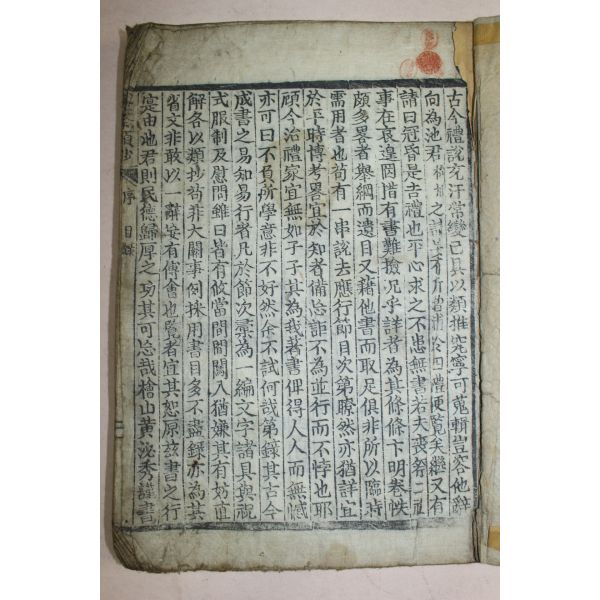 古今禮說充汗常變已具以類推究寧可蒐輯豈容他辭
向為池君之請於四禮便覽矣繼又有
請曰冠昏是吉禮也平心求之不患無書若夫喪祭二祀
事在哀遑因措有書難撿况乎詳者為其條條卞明卷帙
頗多畧者舉綱而遺目又藉他書而取足俱非所以臨時
需用者也苟有一串說去應行節目次第瞭然亦猶詳宜
於平時博考畧宜於知者備忘詎不為並行而不悖也耶
顧今治禮家宜無如子子其為我著書俾得人人而無憾
亦可曰不負所學意非不好然余不試何哉第錄其古今
成書之易知易行者凡於節次彙為一編文字諸具與祝
式服制及慰問雖曰皆有攸當間間闌入猶嫌其有妨直
解各以類抄苟非大關事例採用書目多不盡錄亦為其
省文非敢以一辭妄有傅會也覽者宜其恕原玆書之行
寔由池君則民德歸厚之功其可忘哉檜山黃泌秀謹書
序 目錄